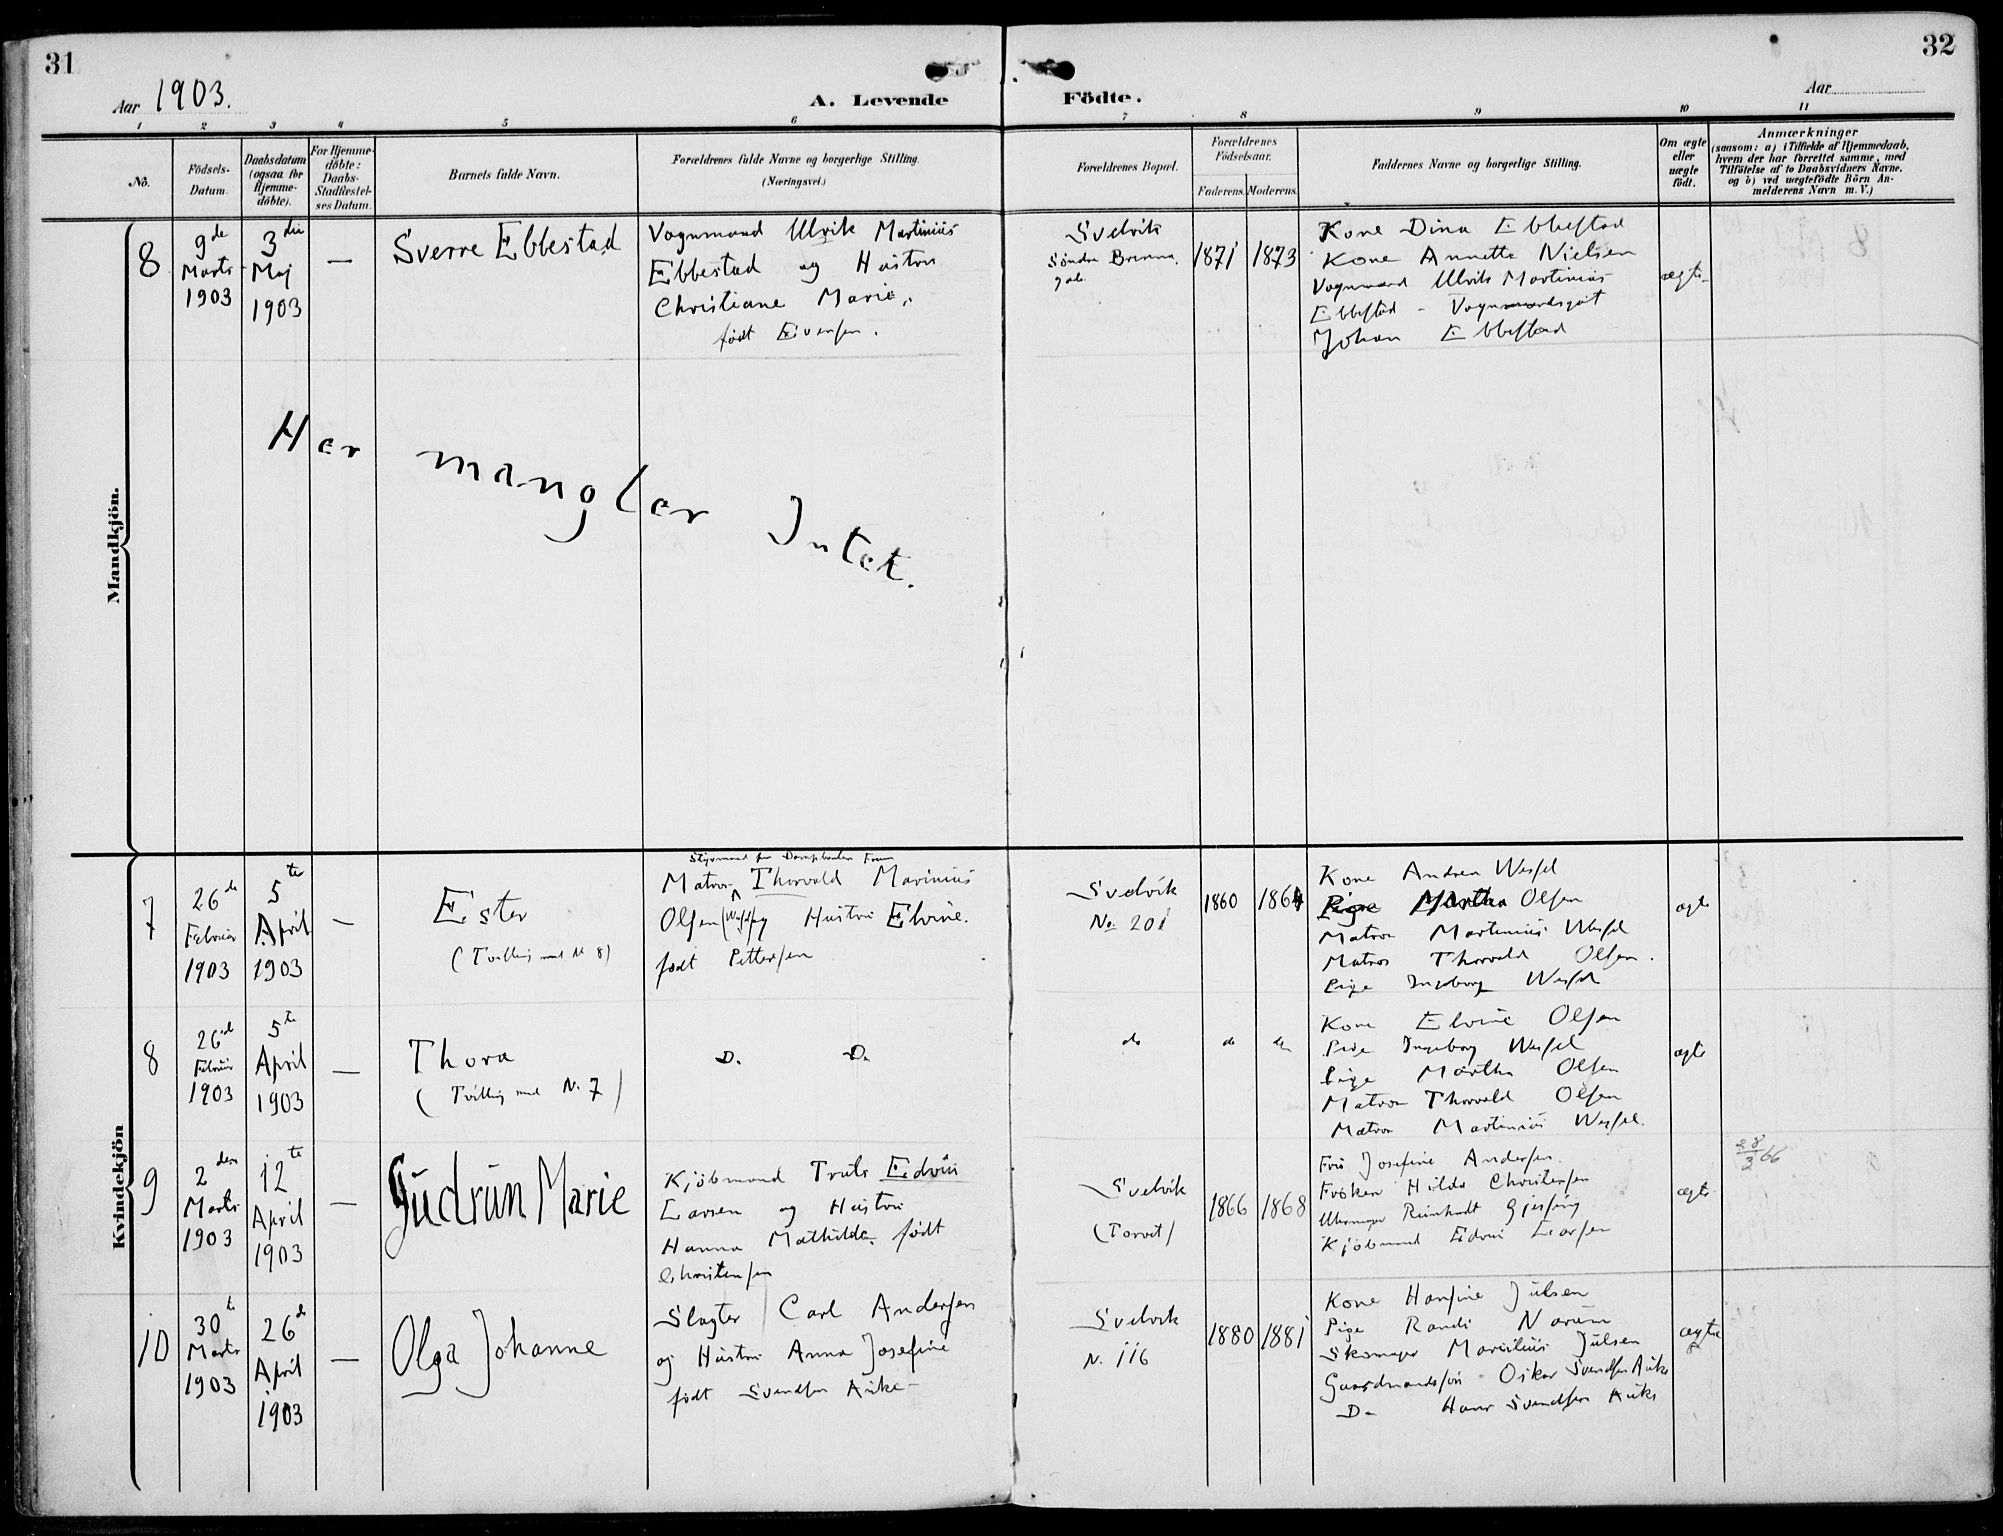 31
32
Aar 1903.
A. Levende Födte.
Aar
1 2 3 4 5 6 7 8 9 10 11
No.
Födsels-
Datum.
Daabsdatum
(ogsaa for
Hjemme-
döbte).
For Hjemme-
döbte:
Daabs-
Stadfæstel-
ses Datum.
Barnets fulde Navn.
Forældrenes fulde Navne og borgerlige Stilling.
(Næringsvei.)
Forældrenes Bopæl.
Forældrenes
Födselsaar.
Faderens. Moderens.
Faddernes Navne og borgerlige Stilling.
Om ægte
eller
uægte
födt.
Anmærkninger
(saasom: a) i Tilfælde af Hjemmedaab,
hvem der har forrettet samme, med
Tilföielse af to Daabsvidners Navne.
og b) ved uægtefödte Börn An-
melderens Navn m. V.)
Mandkjön.
8
9de
Marts
1903
3die
Maj
1903
—
Sverre Ebbestad
Vognmand Ulrik Martinius
Ebbestad og Hustru
Christiane Marie,
født Eivensen.
Svelvik
Søndre Brenna
gade
1871
1873
Kone Dina Ebbestad
Kone Annette Nielsen
Vognmand Ulrik Martinius
Ebbestad - Vognmandsgut
Johan Ebbestad
ægte
Her mangler Intet.
Kvindekjön
7
26de
Februar
1903
5te
April
1903
—
Ester
(Tvilling med No 8)
Matros Thorvald Marinius
Olsen (Wessel) og Hustru Elvine.
født Pettersen
Svelvik
No. 201
1860
1864
Kone Andrea Wessel
Pige Martha Olsen
Matros Martinius Wessel
Matros Thorvald Olsen.
Pige Ingeborg Wessel
ægte
8
26de
Februar
1903
5te
April
1903
—
Thora
(Tvilling med No. 7)
Do. Do.
do
do
do
Kone Elvine Olsen
Pige Ingeborg Wessel
Pige Martha Olsen
Matros Thorvald Olsen
Matros Martinius Wessel.
ægte
9
2den
Marts
1903
12te
April
1903
—
Gudrun Marie
Kjøbmand Truls Edvin
Larsen og Hustru
Hanna Mathilde, født
Christensen
Svelvik
(Torvet)
1866
1868
Fru Josefine Andersen.
Frøken Hilda Christensen
Uhrmager Reinhardt Gjessing
Kjøbmand Edvin Larsen
ægte
28/3 66
10
30te
Marts
1903
26de
April
1903
—
Olga Johanne
Slagter Carl Andersen
og Hustru Anna Josefine
født Svendsen Auke
Svelvik
No. 116
1880
1881
Kone Hansine Julsen
Pige Randi Narum
Skomager Julsen
Gaardmandssøn Oskar Svendsen Auke
Do Hans Svendsen Auke
ægte